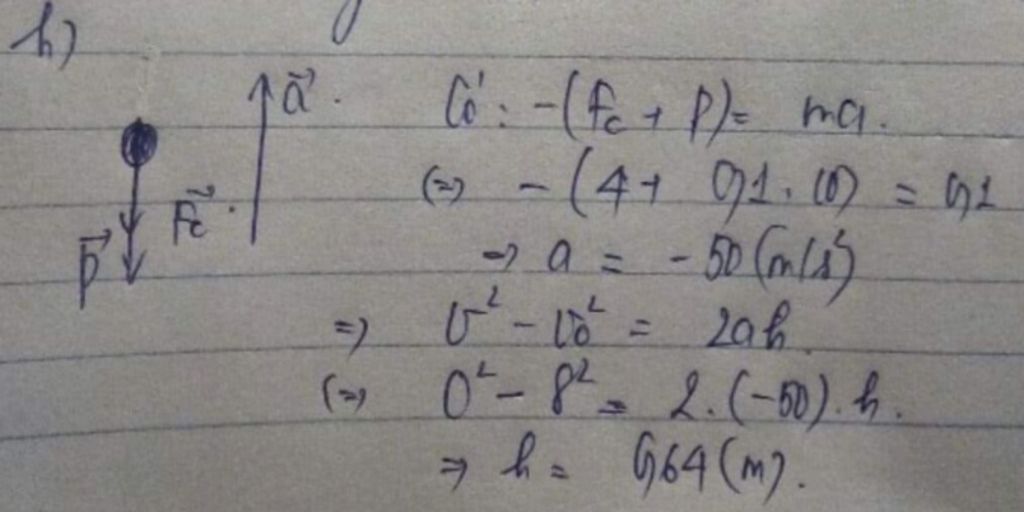 b)
a⃗.
Có: -(Fc + P) = ma.
F⃗c.
P⃗
(=) - (4 + 0,1. 10) = 0,1
=> a = -50 (m/s²)
=> v² - v₀² = 2ah
(=) 0² - 8² = 2.(-50).h.
=> h = 0,64 (m).